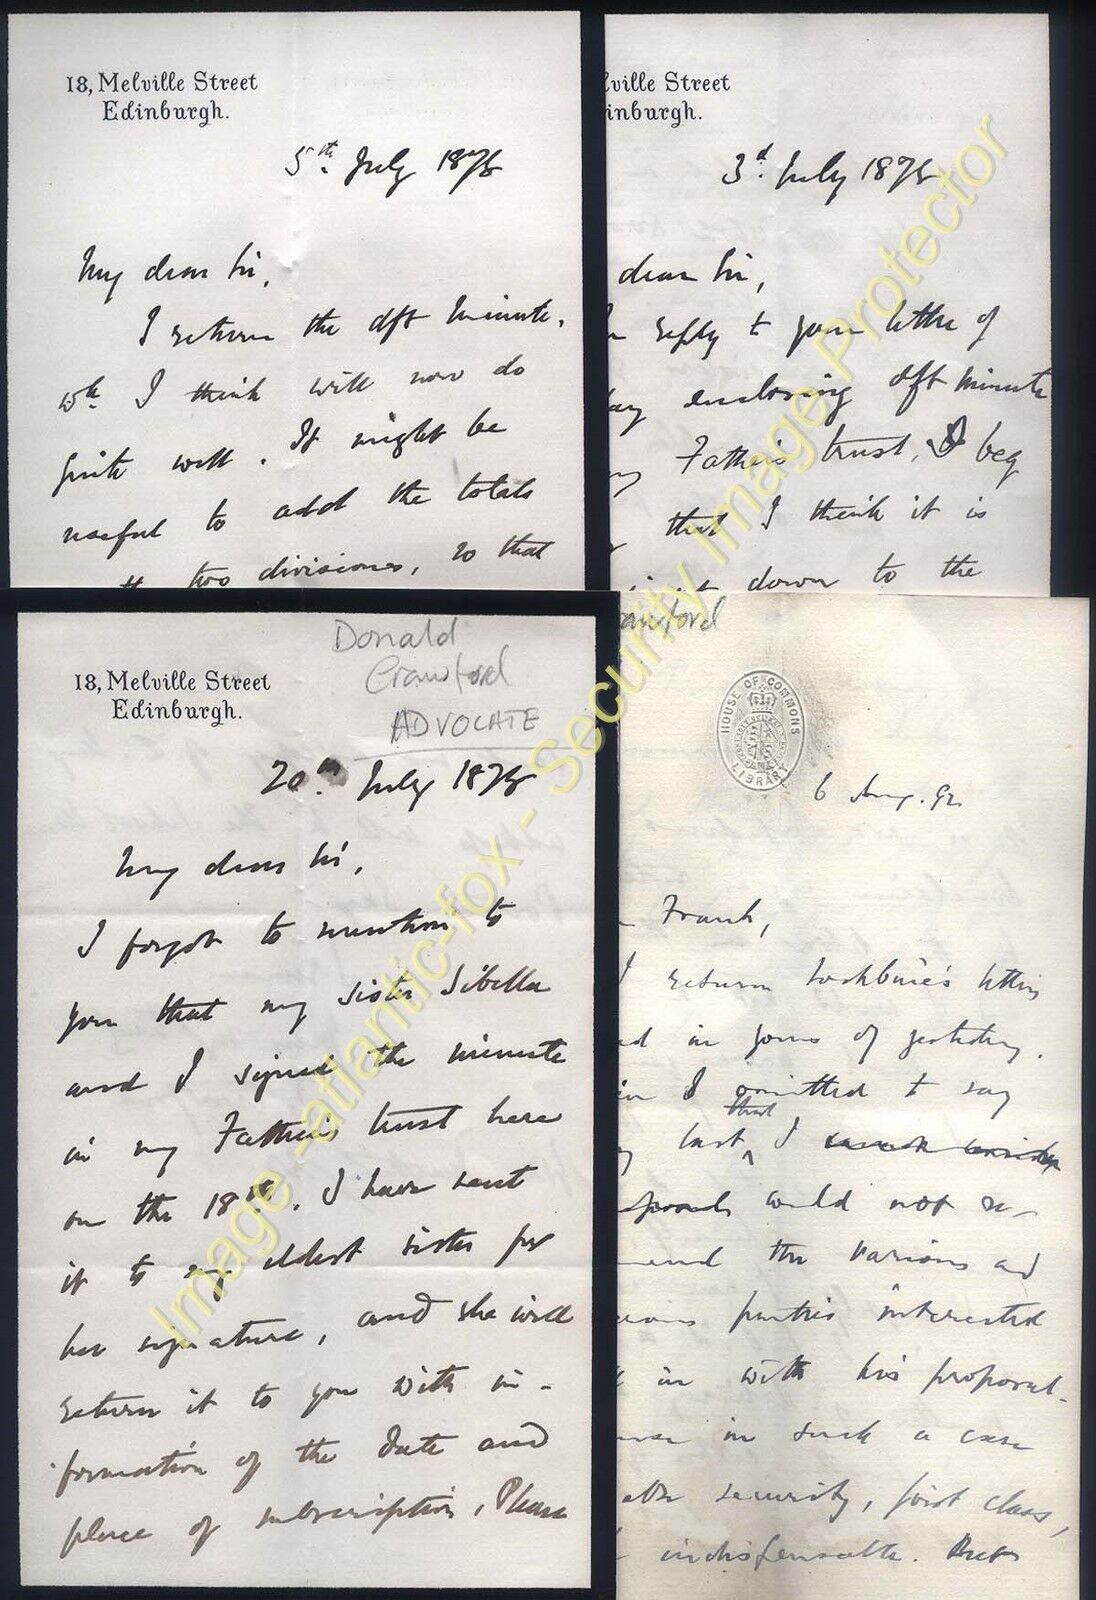 18, Melville Street
Edinburgh.
5th. July 1878
My dear Sir,
I return the dft minute,
wh. I think will now do
quite well. It might be
useful to add the totals
two divisions, so that
lville Street
inburgh.
3d. July 1878
dear Sir,
reply to your letter of
enclosing dft minute
Father's trust, I beg
that I think it is
down to the
Donald
Crawford
ADVOCATE
18, Melville Street
Edinburgh.
20th. July 1878
My dear Sir,
I forgot to mention to
you that my sister Sibella
and I signed the minute
in my Father's trust here
on the 18th. I have sent
it to my eldest sister for
her signature, and she will
return it to you with in-
formation of the date and
place of subscription, Please
awford
HOUSE OF COMMONS
LIBRARY
6 Aug. 92
Frank,
I return Lockbure's letters
in yours of yesterday.
I omitted to say
last that I
would not
the various and
parties interested
in with his proposal.
in such a case
security, first class,
indispensable. But
Image -atlantic-fox - Security Image Protector